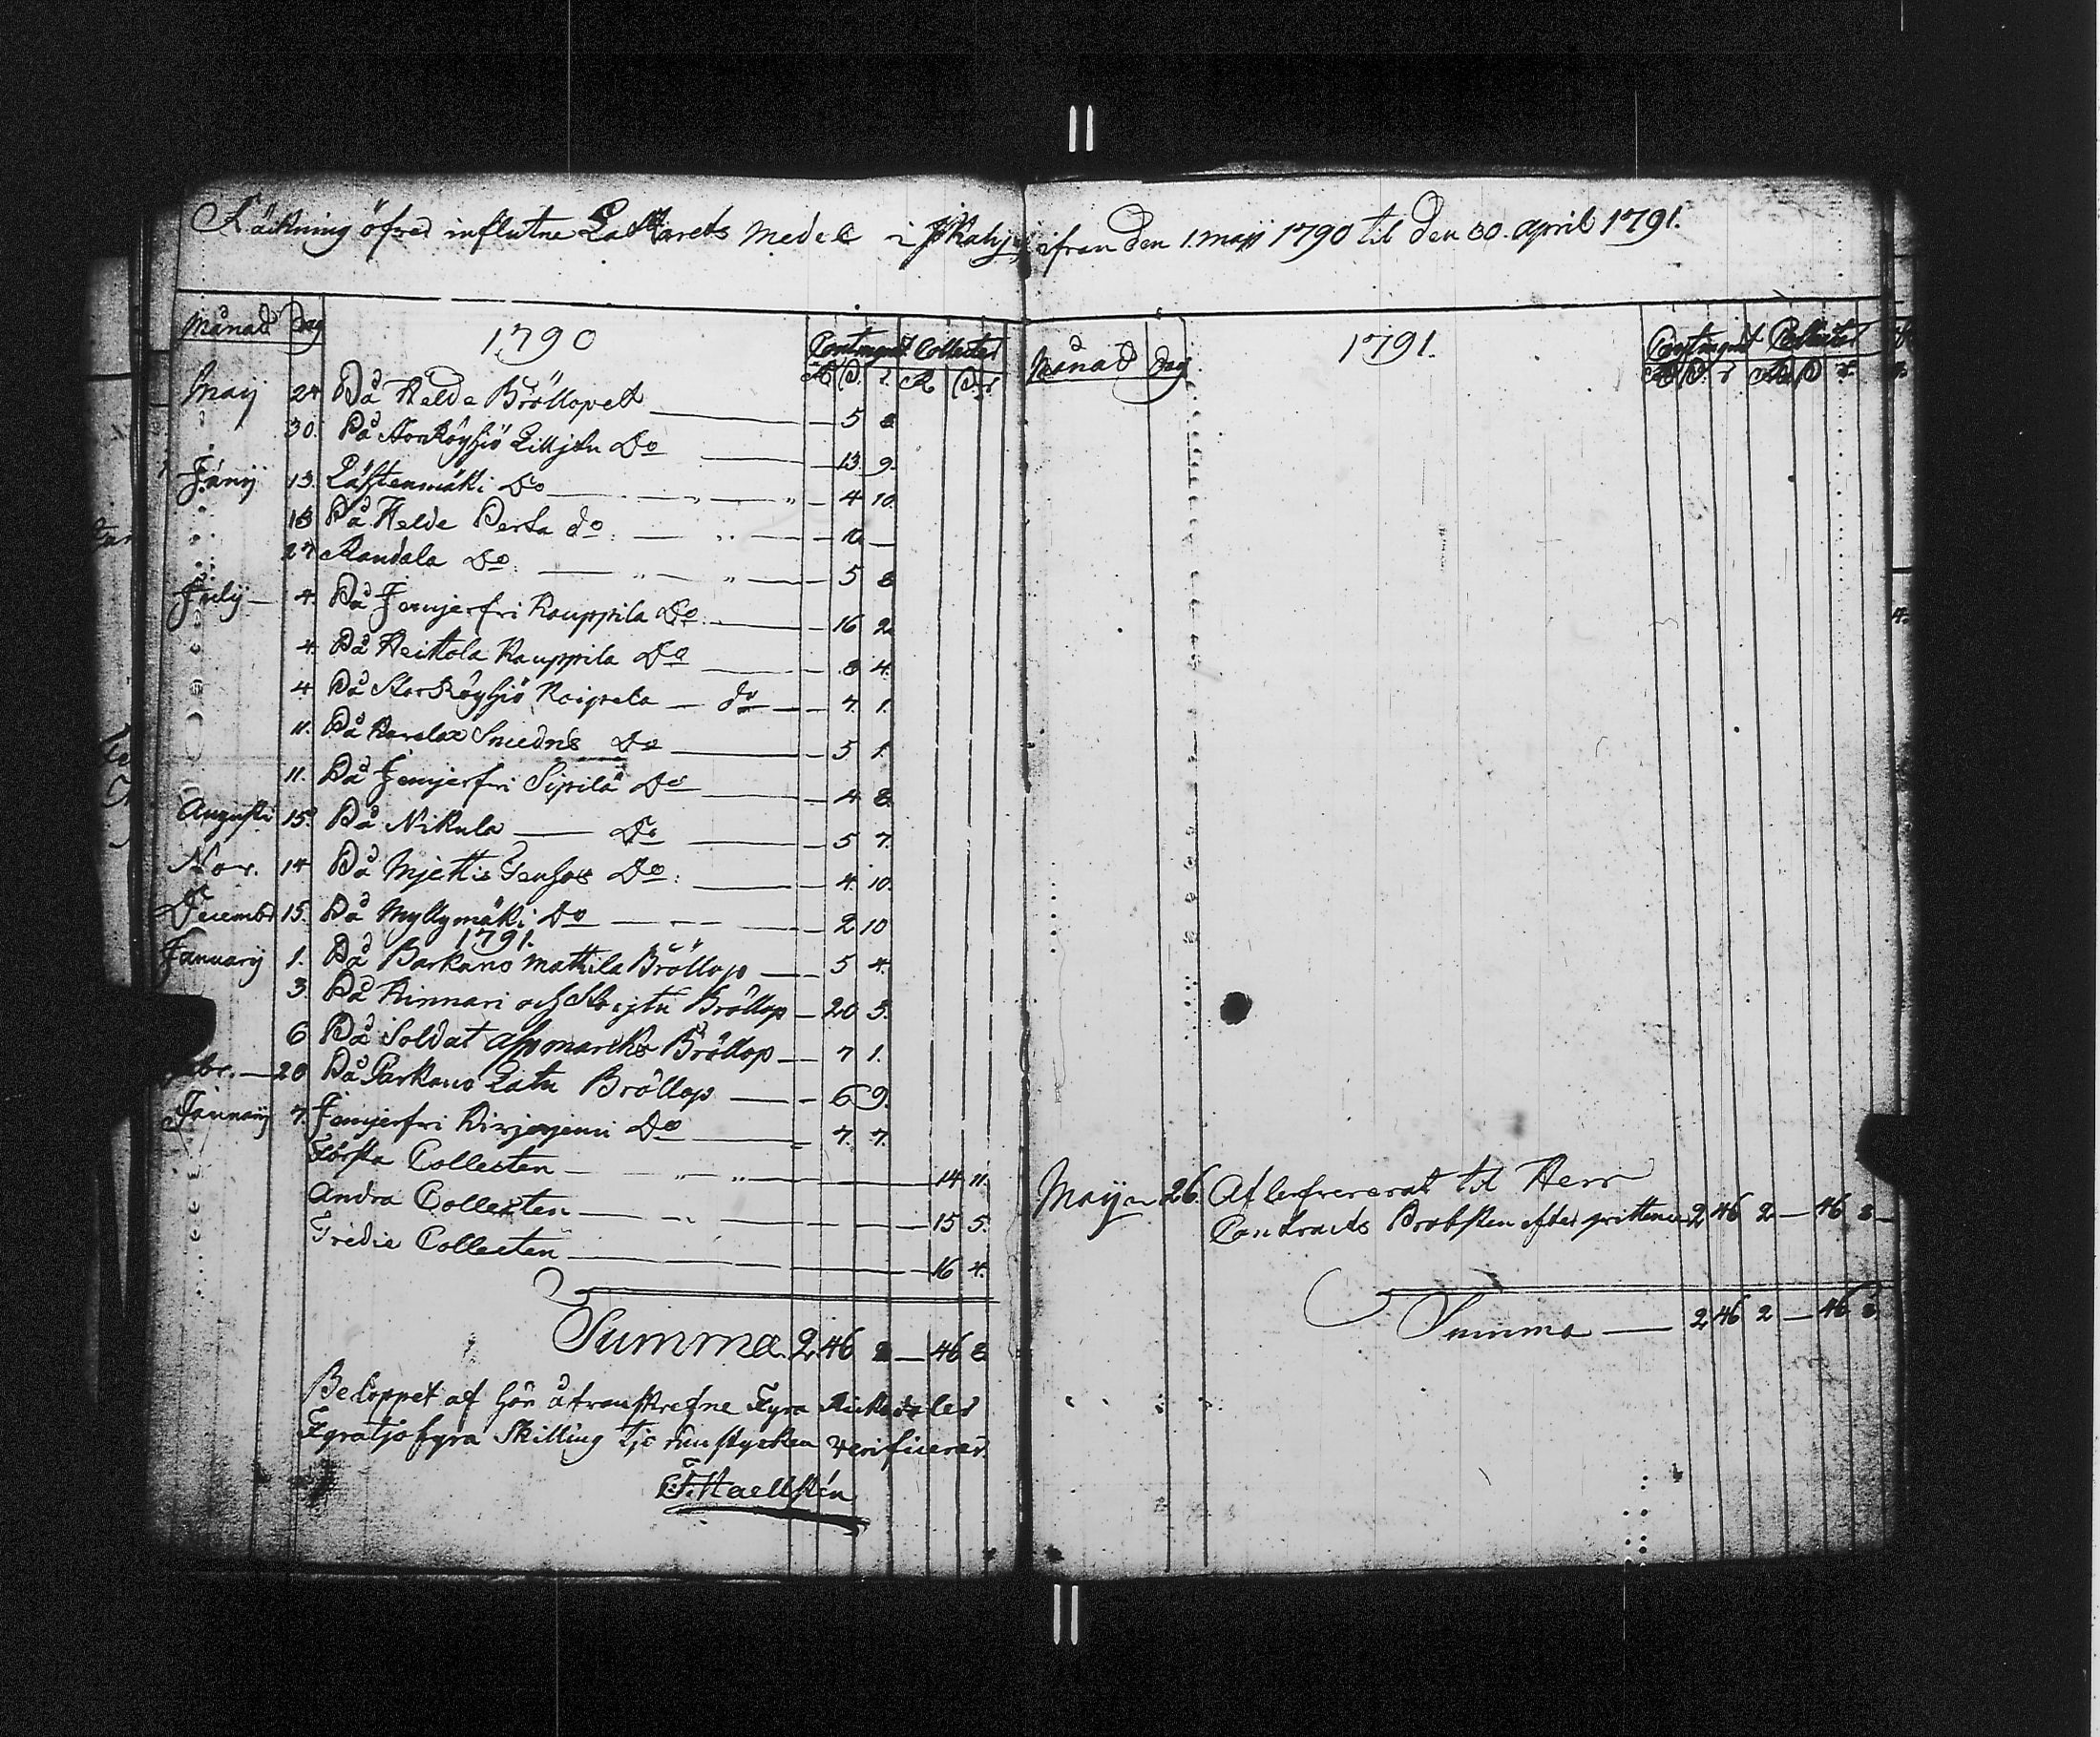 Räkning öfver influtne Lattarets Medel i Ikalis ifrån den 1. maji 1790 til den 30. april 1791.
Månad Dag 1790 Contingent Collecter
R S. r. R S. r
Maij 24 På Kelde Bröllopet — 5 8
30. På StorRöyhiö Lilljtu Do — 13 9.
Junij 13. Låstenmäki Do — 4 10
13 På Helde Perta do. — 10 —
27 Mandala Do. — 5 8
Julij — 4. På Jemjerfvi Kauppila Do. — 16 2
4. På Heittola Kauppila Do — 8 4.
4 På StorRöyhiö Knigsela — do — 7. 1.
11. På Karelax Smedns Do — 5 1.
11. På Jemjerfvi Sipilä Do — 4 8.
Augusti 15. På Nikula — Do — 5 7.
Nov. 14 På Mjettis Do. — 4. 10.
Decembr 15. På Myllymäki Do — 2 10
1791.
Januarij 1. På Barkano Mattila Bröllop — 5 4.
3. På Kinnari och Bröllop — 20 3.
6 På Soldat Bröllop — 7 1.
br. — 20 På Parkano Latu Bröllop — 6 9.
Januarij 7. Jemjerfvi Do — 7. 7.
Första Collecten — 14 11.
Andra Collecten — 15 5.
Tredie Collecten — 16 4.
Summa. 2. 46 2 — 46 8
Beloppet af här åfvanskrefne Fyra Riksdaler
Fyratjofyra Skilling tje runstycken verificerar.
Haellstén
Månad Dag 1791. Contingent Collecter
R S. r R S r.
Maij 26. Aflefvererat til Herr
Contracts Probsten efter qvittence 2 46 2 — 46 8 —
Summa — 2 46 2 — 46 8.